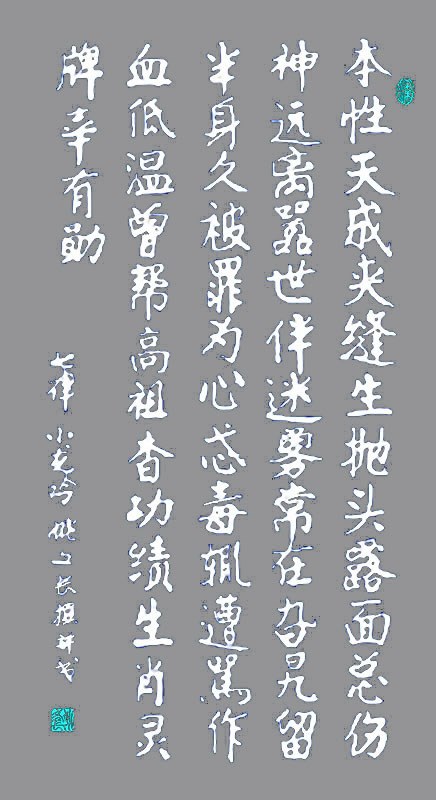 本性天成夹缝生抛头露面总伤
神远离嚣世伴迷雾常在旮旯留
半身久被罪为心忒毒辄遭骂作
血低温曾帮高祖查功绩生肖灵
牌幸有勋
七律 小龙吟 姚长撰并书